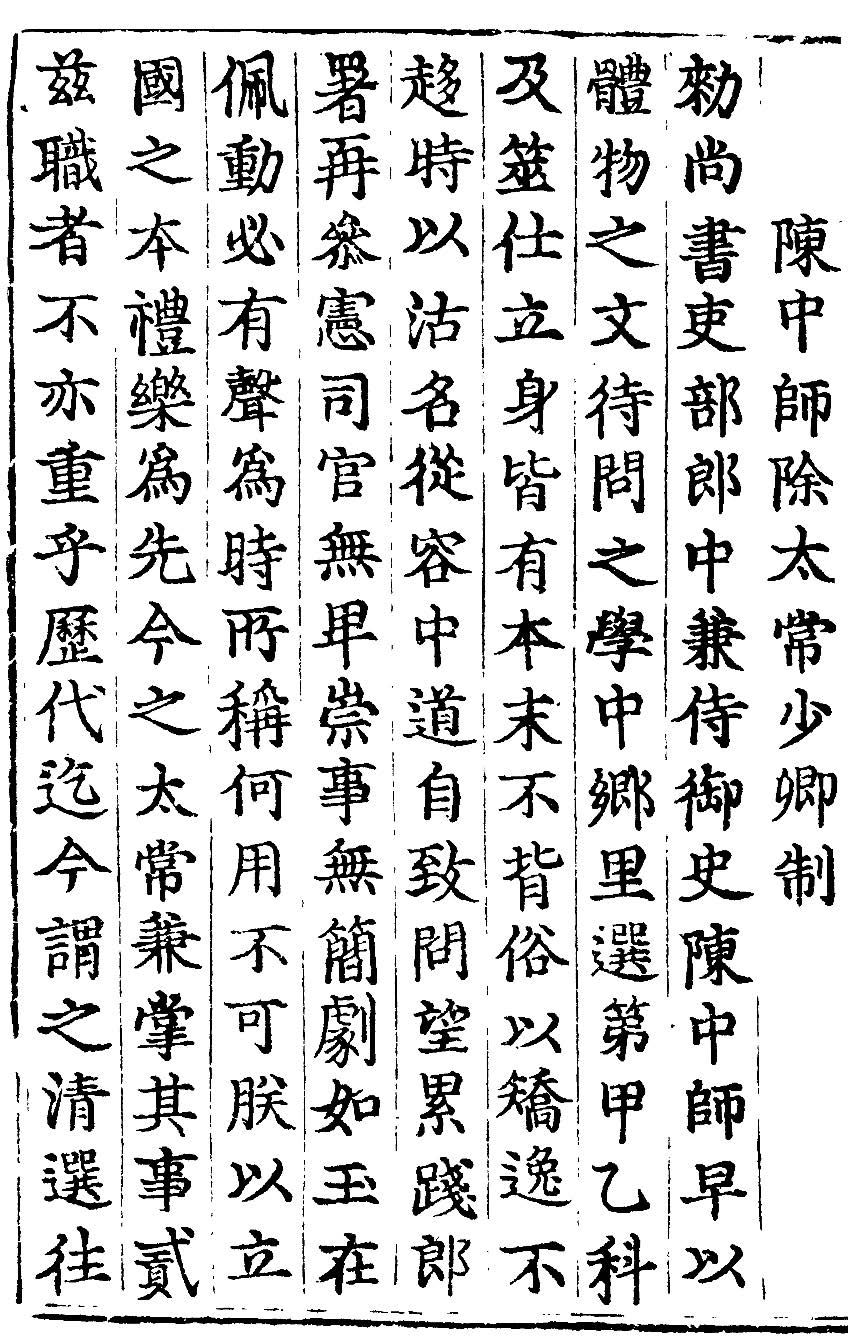 陳中師除太常少卿制
勑尚書吏部郎中兼侍御史陳中師早以
體物之文待問之學中鄉里選第甲乙科
及筮仕立身皆有本末不背俗以矯逸不
趍時以沽名從容中道自致問望累踐郎
署再叅憲司官無𤰞崇事無簡劇如玉在
佩動必有聲爲時所稱何用不可朕以立
國之本禮樂爲先今之太常兼掌其事貳
兹職者不亦重乎歷代迄今謂之清選往